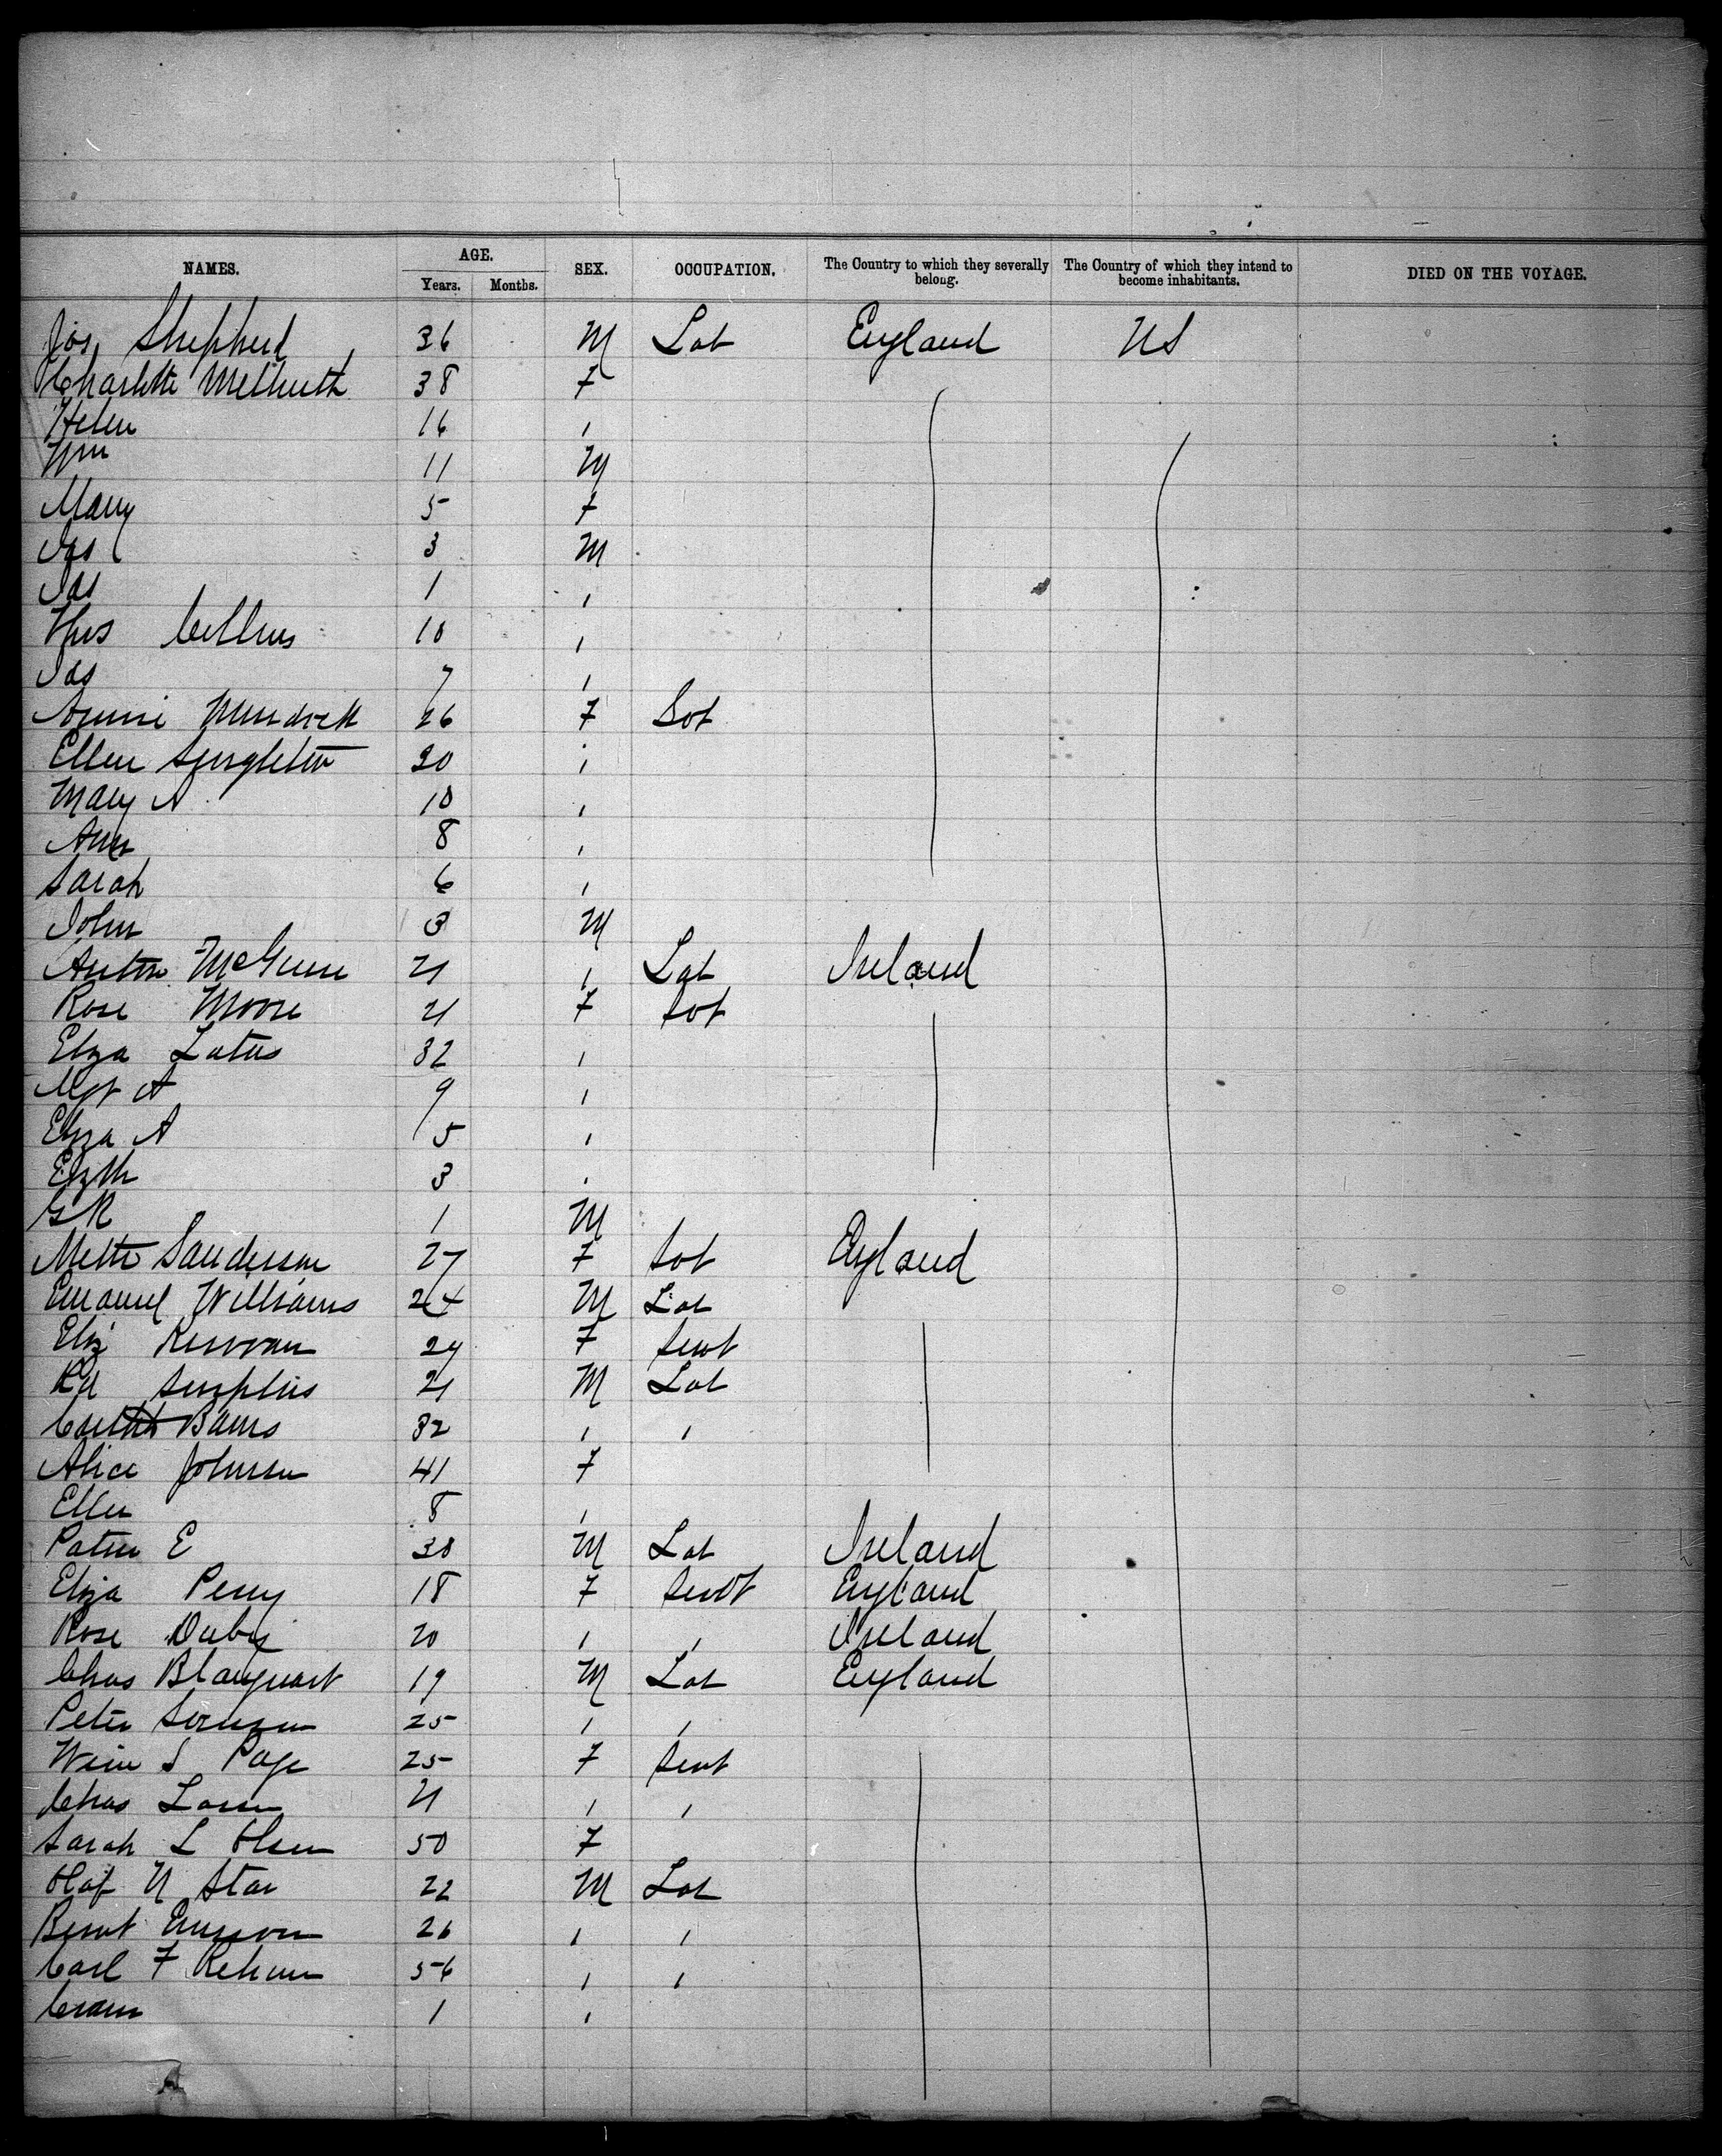 NAMES. AGE. SEX. OCCUPATION. The Country to which they severally belong. The Country of which they intend to become inhabitants. DIED ON THE VOYAGE.
Years. Months.
Jos Shepherd 36 M Lab England US
Charlotte 38 F
Helen 16 "
Wm 11 M
Mary 5 F
Jas 3 M
Jas 1 "
Thos Collins 10 "
Jas 7 "
Annie 26 F Sot
Ellen Singleton 30 "
Mary A 10 "
Ann 8 "
Sarah 6 "
John 3 M
McGuire 21 " Lab Ireland
Rose Moore 21 F Sot
Eliza 32 "
Mgt A 9 "
Eliza A 5 "
Elizth 3 "
G R 1 M
Sanderson 27 F Sot England
Emanuel Williams 24 M Lab
Eliz 24 F Servt
Rd 21 M Lab
32 " "
Alice Johnson 41 F
Ellen 8 "
E 30 M Lab Ireland
Eliza Perry 18 F Servt England
Rose 20 " " Ireland
Chas Blanquart 19 M Lab England
Peter 25 " "
S Page 25 F Servt
Chas 21 " "
Sarah L Olsen 50 F
Olaf N Star 22 M Lab
26 " "
Carl F 56 " "
1 "